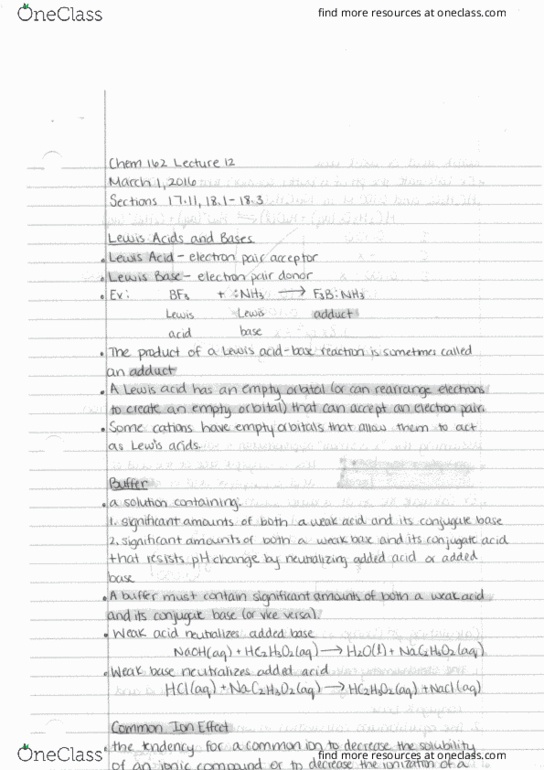 OneClass find more resources at oneclass.com
Chem 162 Lecture 12
March 1, 2016
Sections 17.11, 18.1-18.3
Lewis Acids and Bases
• Lewis Acid - electron pair acceptor
• Lewis Base - electron pair donor
• Ex: BF₃ + :NH₃ → F₃B:NH₃
Lewis Lewis adduct
acid base
• The product of a Lewis acid-base reaction is sometimes called
an adduct
• A Lewis acid has an empty orbital (or can rearrange electrons
to create an empty orbital) that can accept an electron pair.
• Some cations have empty orbitals that allow them to act
as Lewis acids.
Buffer
• a solution containing:
1. significant amounts of both a weak acid and its conjugate base
2. significant amounts of both a weak base and its conjugate acid
that resists pH change by neutralizing added acid or added
base
• A buffer must contain significant amounts of both a weak acid
and its conjugate base (or vice versa).
• Weak acid neutralizes added base
NaOH(aq) + HC₂H₃O₂(aq) → H₂O(l) + NaC₂H₃O₂(aq)
• Weak base neutralizes added acid
HCl(aq) + NaC₂H₃O₂(aq) → HC₂H₃O₂(aq) + NaCl(aq)
Common Ion Effect
• the tendency for a common ion to decrease the solubility
of an ionic compound or to decrease the ionization of a
OneClass find more resources at oneclass.com